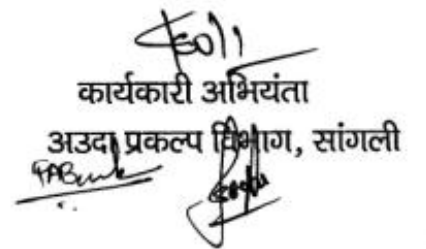 कार्यकारी अभियंता
अउदा प्रकल्प विभाग, सांगली